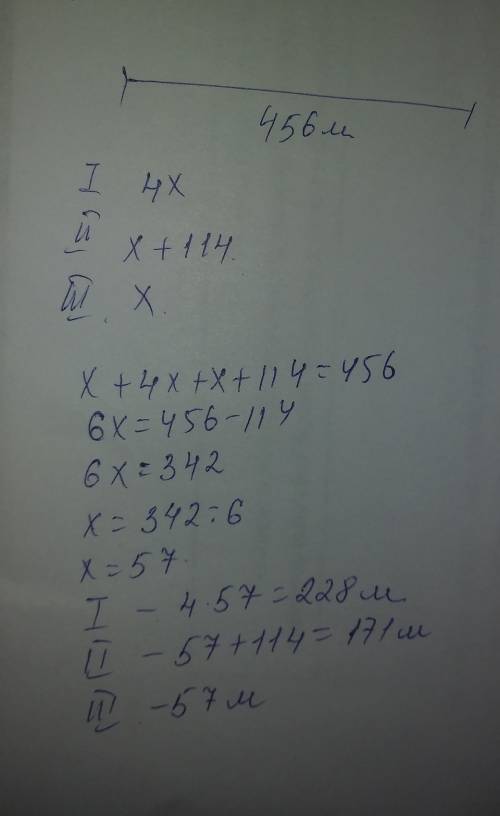 456м
I 4x
II x+114.
III. x.
x+4x+x+114=456
6x=456-114
6x=342
x=342:6
x=57.
I - 4·57=228м
II - 57+114=171м
III - 57м